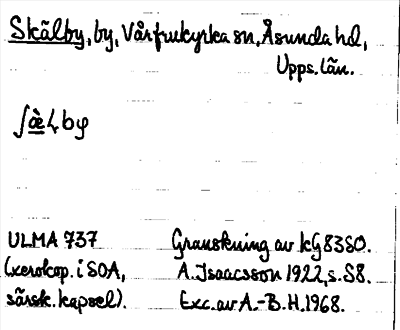 Skälby, by, Vårfrukyrka sn, Åsunda hd,
Upps. län.
ʃæ̀ɫby
ULMA 737
(xerokop. i SOA,
särsk. kapsel).
Granskning av kG83SO.
A. Isaacsson 1922, s. 58.
Exc. av A.-B. H. 1968.